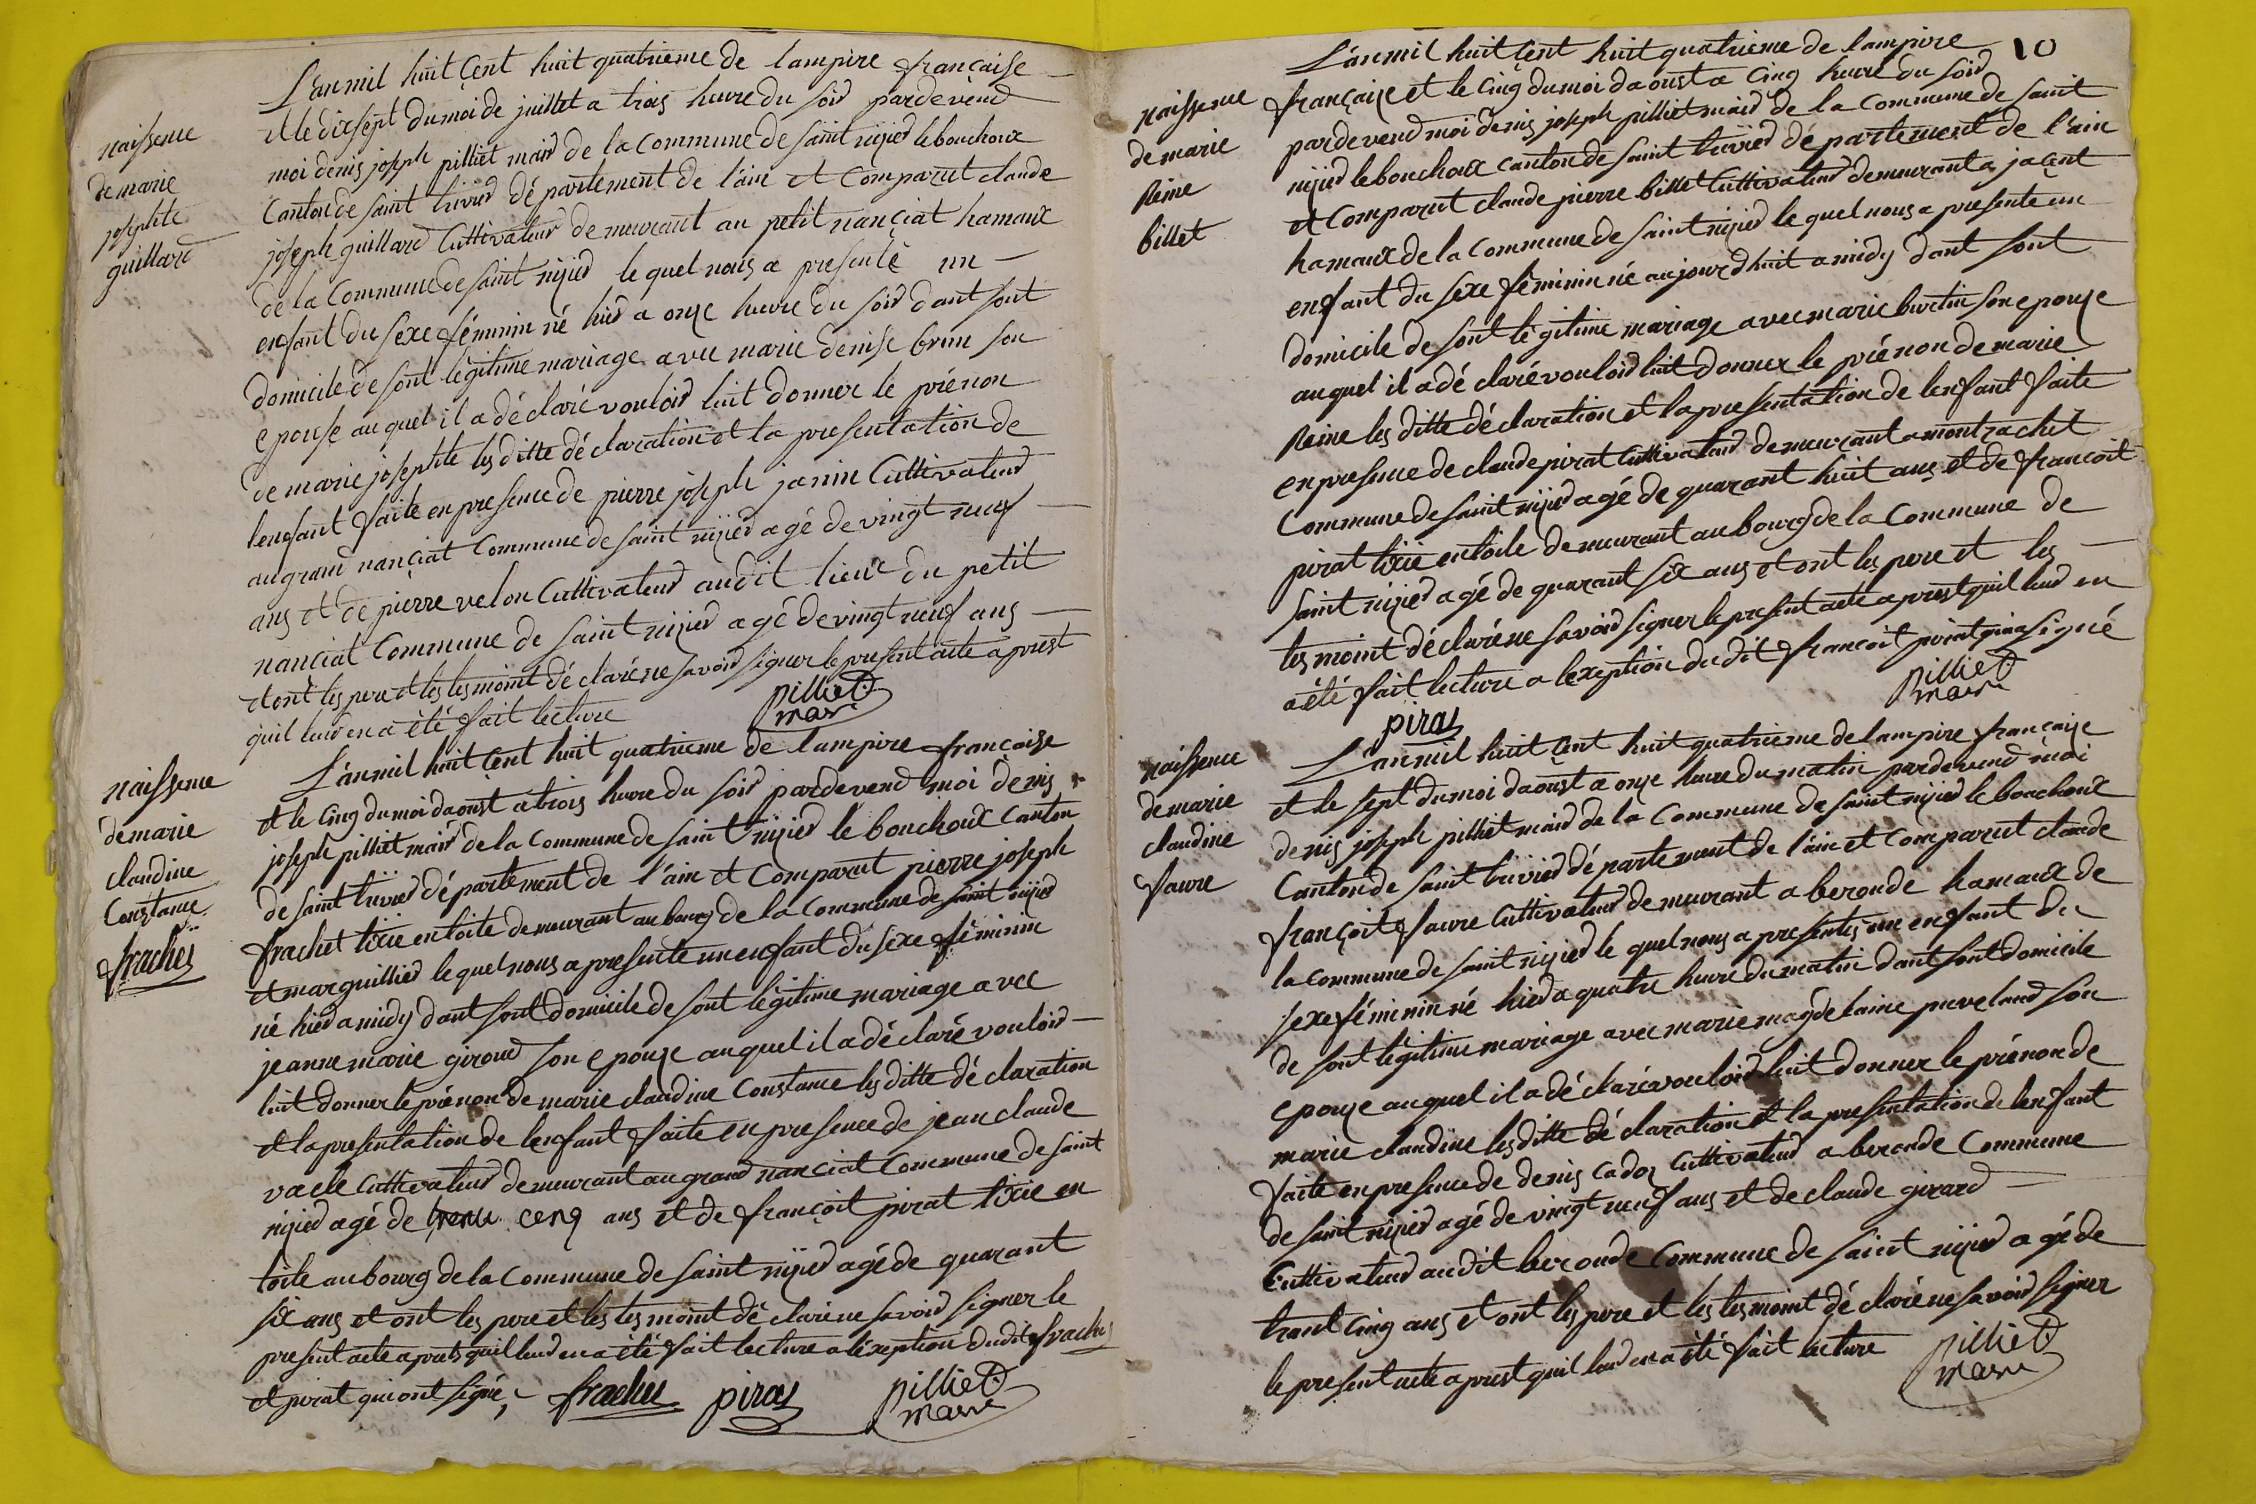 L'an mil huit Cent huit quatrieme de lampire française
et le dix sept du moi de juillet a trois heure du soir pardevend
moi denis joseph pilliet mair de la Commune de saint nizier le bouchoux
Canton de saint trivier département de l'ain et Comparut claude
joseph guillard Cultivateur demeurant au petit nançiat hamaux
de la Commune de saint nizier le quel nous a presenté un
enfant du sexe féminin né hier a onze heure du soir dant sont
domicile de sont légitime mariage avec marie denise brun son
epouse auquel il a déclaré vouloir luit donner le prénon
de marie josephte les ditte déclaration et la presentation de
lenfant faite en presence de pierre joseph janin Cultivateur
au grand nançiat Commune de saint nizier agé de vingt neuf
ans et de pierre velon Cultivateur audit lieux du petit
nanciat Commune de saint nizier agé de vingt neuf ans
et ont les pere et les tesmoint déclaré ne savoir signer le present acte aprest
quil leur en a été fait lecture
pilliet
mair
naissence
de marie
josephte
guillard
L'an mil huit Cent huit quatrieme de lampire françoise
et le Cinq du moi daoust a trois heure du soir pardevend moi denis
joseph pilliet mair de la Commune de saint nizier le bouchoux Canton
de saint trivier département de l'ain et Comparut pierre joseph
frachet tixie en toile demeurant au bourg de la Commune de saint nizier
et marguillier le quel nous a presente un enfant du sexe féminin
né hier a midy dant sont domicile de sont légitime mariage avec
jeanne marie giroud son epouze auquel il a déclaré vouloir
luit donner le prénon de marie claudine Constance les ditte déclaration
et la presentation de lenfant faite en presence de jean claude
vaele Cultivateur demeurant au grand nanciat Commune de saint
nizier agé de trente cenq ans et de françoit pirat tixie en
toile au bourg de la Commune de saint nizier agé de quarant
six ans et ont les pere et les tesmoint déclaré ne savoir signer le
present acte aprest quil leur en a été fait lecture a lexeption dudit frachet
et pirat qui ont signé,
frachet pirat pilliet
mair
naissence
de marie
claudine
Constance
frachet
10
L'an mil huit Cent huit quatrieme de lampire
françaize et le Cinq du moi daoust a Cinq heure du soir
pardevend moi denis joseph pilliet mair de la Commune de saint
nizier le bouchoux canton de saint trivier département de l'ain
et Comparut claude pierre billet Cultivateur demeurant a jacent
hamaux de la Commune de saint nizier le quel nous a presente un
enfant du sexe féminin né aujourdhuit a midy dant sont
domicile de sont légitime mariage avec marie burtin son epouze
auquel il a déclaré vouloir luit donner le prénon de marie
Reine les ditte déclaration et la presentation de lenfant faite
en presence de claude pirat Cultivateur demeurant a montrachet
Commune de saint nizier agé de quarant huit ans et de francoit
pirat tixie en toile demeurant au bourg de la Commune de
saint nizier agé de quarant six ans et ont les pere et les
tesmoint déclaré ne savoir signer le present acte aprest quil leur en
a été fait lecture a lexeption du dit francoit pirat qui a signé
pirat
pilliet
mair
naissence
de marie
Reine
billet
L'an mil huit Cent huit quatrieme de lampire française
et le sept du moi daoust a onze heure du matin pardevend moi
denis joseph pilliet mair de la Commune de saint nizier le bouchoux
Canton de saint trivier département de l'ain et Comparut claude
françoit favre Cultivateur demeurant a beronde hamaux de
la commune de saint nizier le quel nous a presentés un enfant du
sexe féminin né hier a quatre heure du matin dant sont domicile
de sont légitime mariage avec marie magdelaine puveland son
epouze auquel il a déclaré vouloir luit donner le prénon de
marie claudine les ditte déclaration et la presentation de lenfant
faite en presence de denis cadoz Cultivateur a beronde Commune
de saint nizier agé de vingt neuf ans et de claude girard
Cultivateur audit beronde Commune de saint nizier agé de
trant Cinq ans et ont les pere et les tesmoint déclaré ne savoir signer
le present acte aprest quil leur en a été fait lecture
pilliet
mair
naissence
de marie
claudine
favre